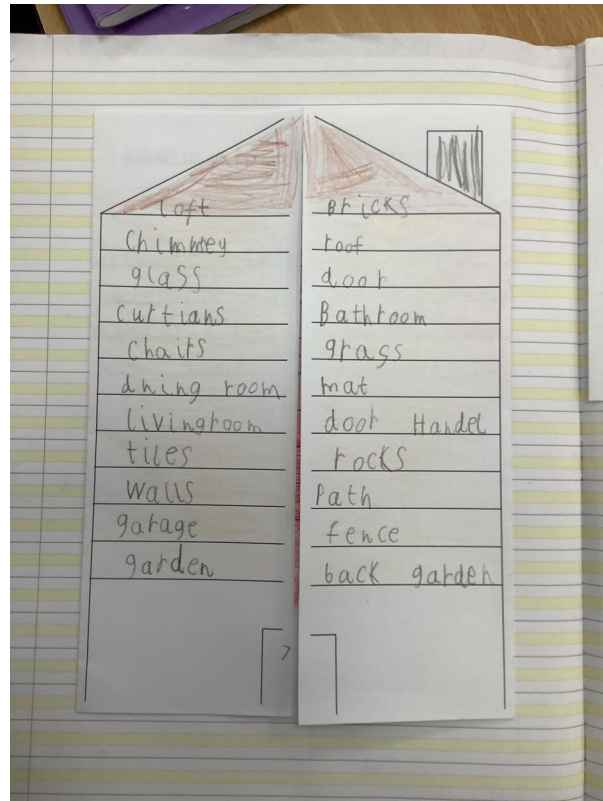 loft
Chimney
glass
curtians
chairs
dning room
livingroom
tiles
walls
garage
garden
Bricks
roof
door
Bathroom
grass
mat
door Handel
rocks
Path
fence
back garden